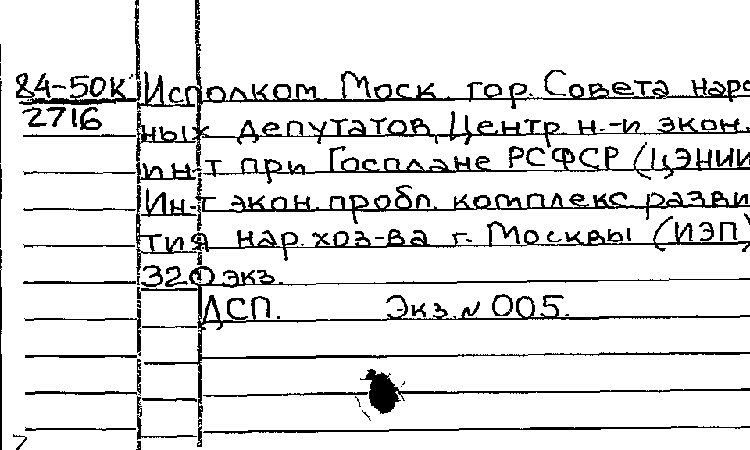 84-50К Исполком Моск. гор. Совета наро
2716
ных депутатов, Центр. н.-и. экон.
ин-т при Госплане РСФСР (ЦЭНИИ
Ин-т экон. пробл. комплекс. разви
тия нар. хоз-ва г. Москвы (ИЭП)
320 экз.
ДСП. Экз. N 005.